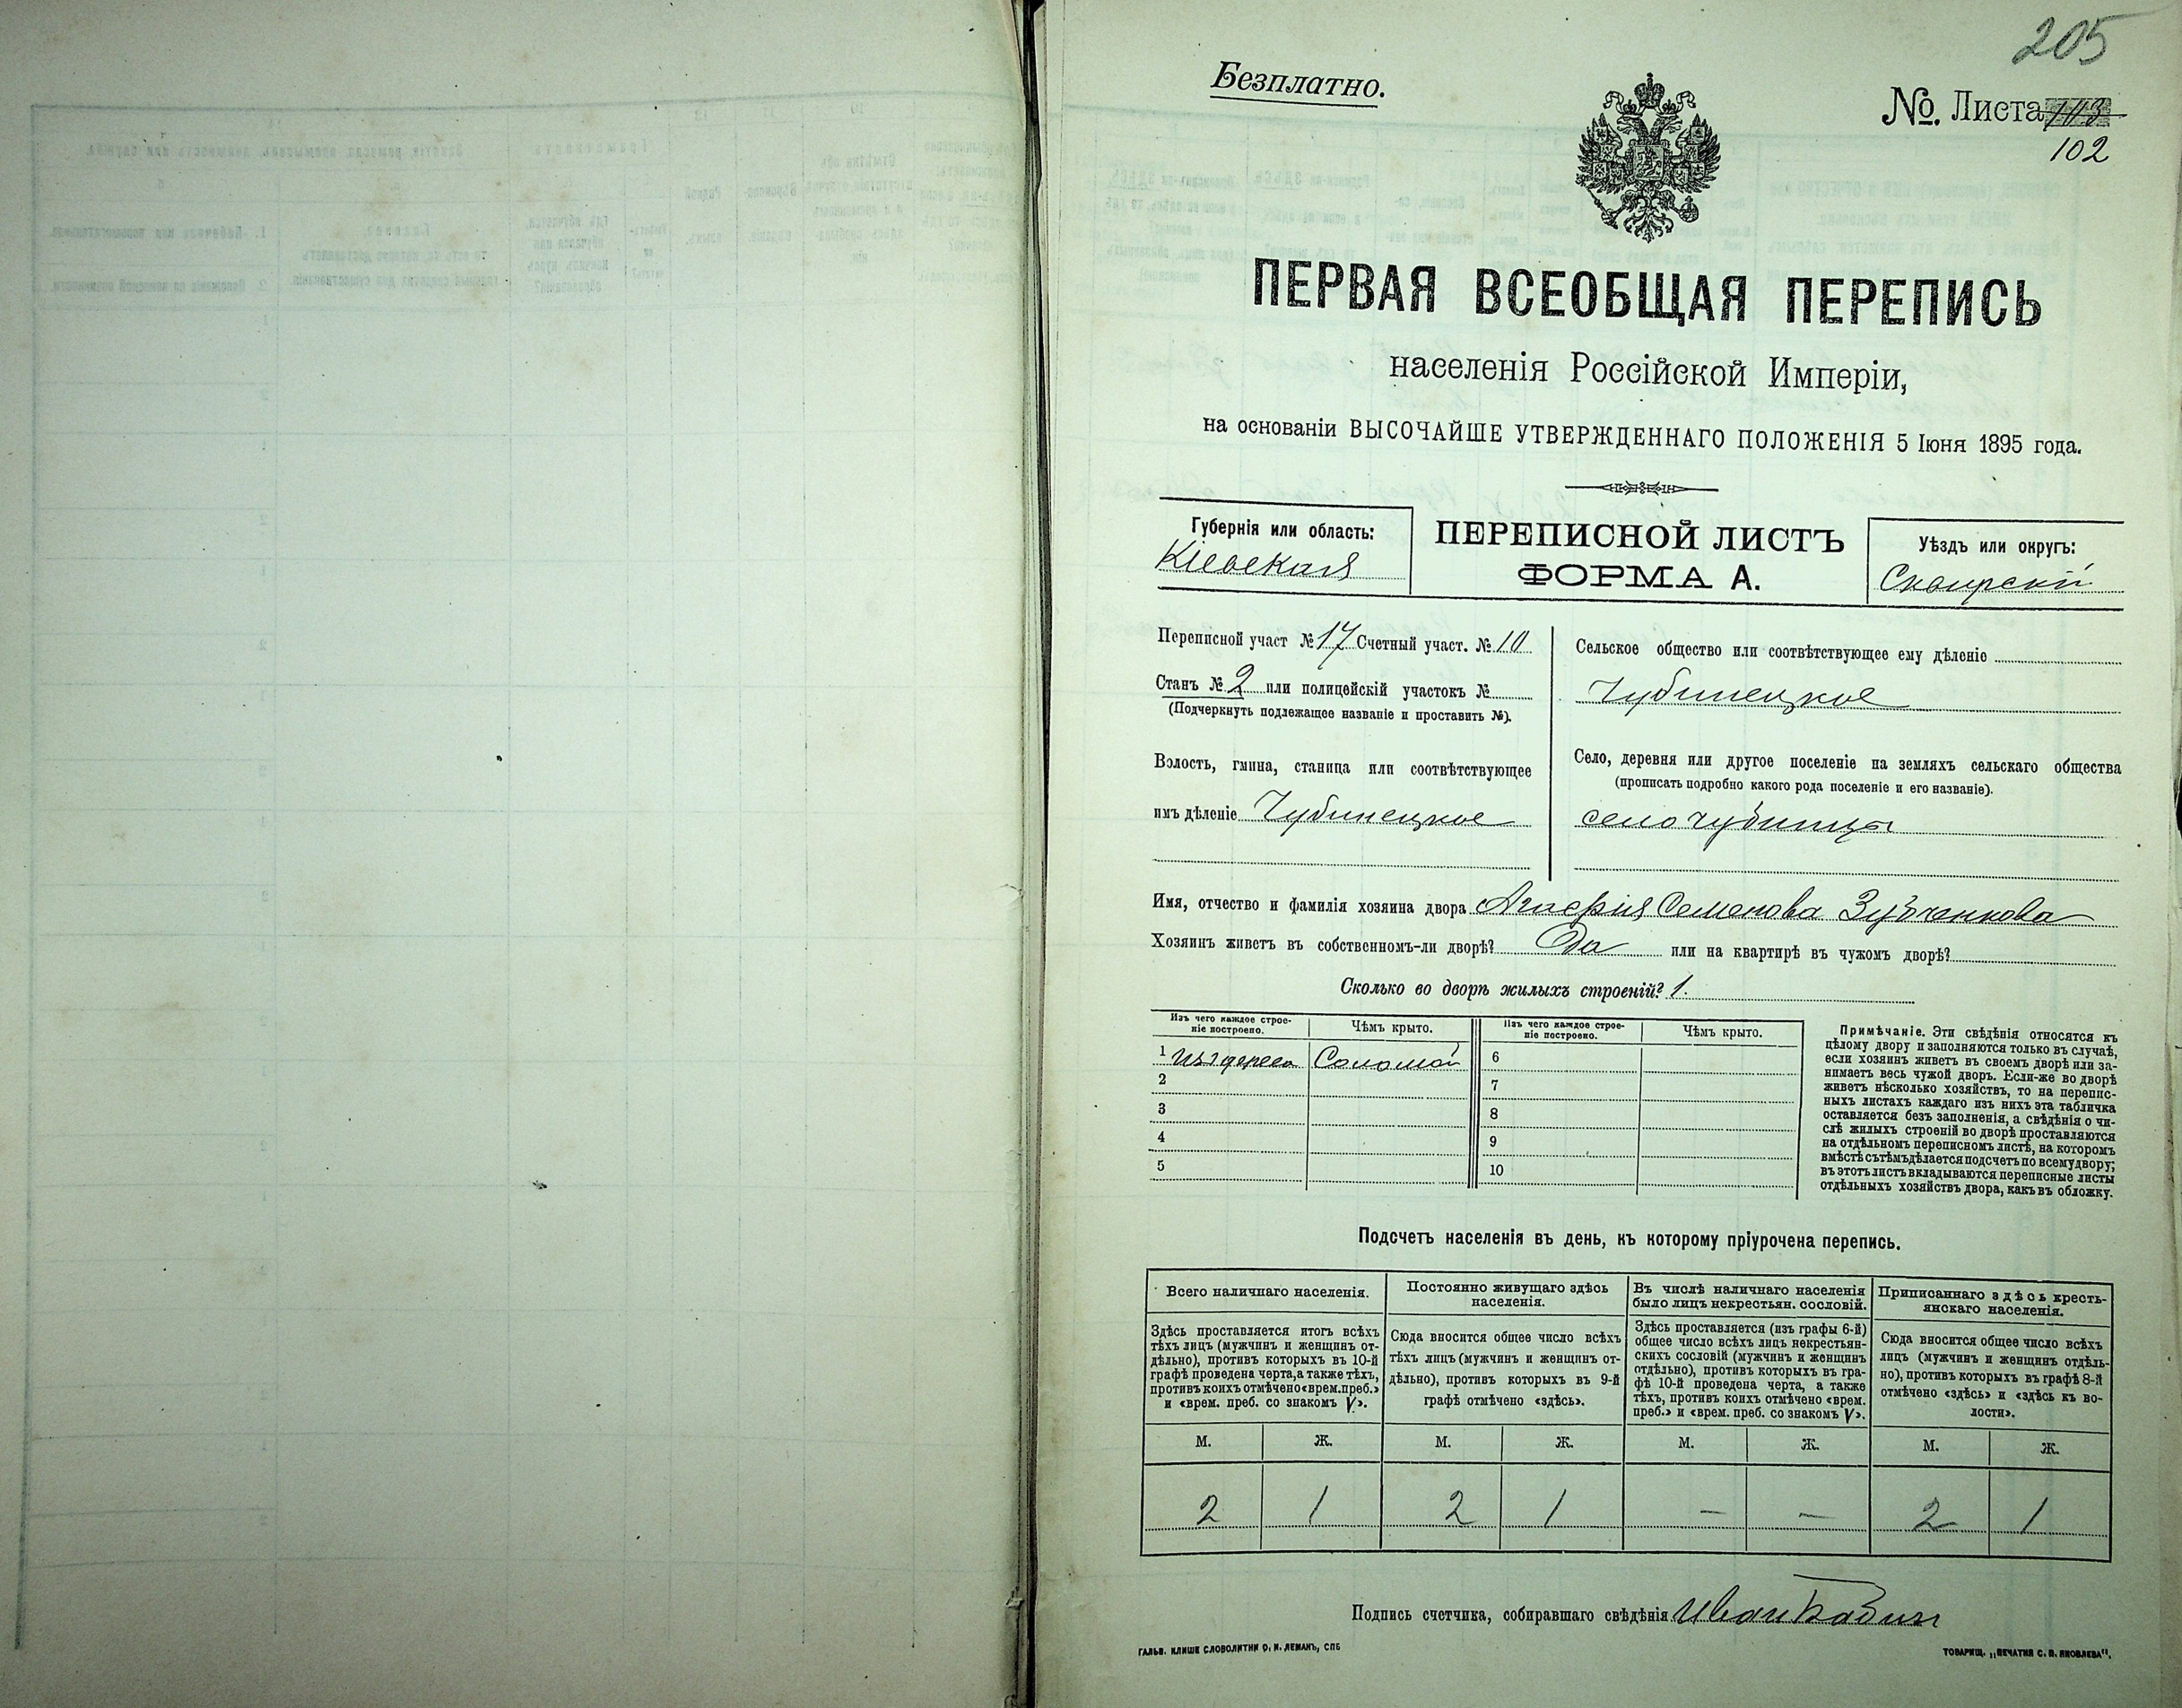 205
Безплатно.
№. Листа 113
102
ПЕРВАЯ ВСЕОБЩАЯ ПЕРЕПИСЬ
населенія Россійской Имперіи,
на основаніи ВЫСОЧАЙШЕ УТВЕРЖДЕННАГО ПОЛОЖЕНІЯ 5 Іюня 1895 года.
Губернія или область:
Кіевская
ПЕРЕПИСНОЙ ЛИСТЪ
ФОРМА А.
Уѣздъ или округъ:
Сквирскій
Переписной участ № 17 Счетный участ. № 10
Станъ № 2 или полицейскій участокъ №
(Подчеркнуть подлежащее названіе и проставить №).
Волость, гмина, станица или соотвѣтствующее
имъ дѣленіе Чубинецкое
Сельское общество или соотвѣтствующее ему дѣленіе
Чубинецкое
Село, деревня или другое поселеніе на земляхъ сельскаго общества
(прописать подробно какого рода поселеніе и его названіе).
село Чубинцы
Имя, отчество и фамилія хозяина двора Семенова Зубченкова
Хозяинъ живетъ въ собственномъ-ли дворѣ? Да или на квартирѣ въ чужомъ дворѣ?
Сколько во дворѣ жилыхъ строеній? 1.
Изъ чего каждое строе-
ніе построено.
Чѣмъ крыто.
Изъ чего каждое строе-
ніе построено.
Чѣмъ крыто.
1 Изъ дерева Соломой 6
2 7
3 8
4 9
5 10
Примѣчаніе. Эти свѣдѣнія относятся къ
цѣлому двору и заполняются только въ случаѣ,
если хозяинъ живетъ въ своемъ дворѣ или за-
нимаетъ весь чужой дворъ. Если-же во дворѣ
живетъ нѣсколько хозяйствъ, то на перепис-
ныхъ листахъ каждаго изъ нихъ эта табличка
оставляется безъ заполненія, а свѣдѣнія о чи-
слѣ жилыхъ строеній во дворѣ проставляются
на отдѣльномъ переписномъ листѣ, на которомъ
вмѣстѣ съ тѣмъ дѣлается подсчетъ по всему двору;
въ этотъ листъ вкладываются переписные листы
отдѣльныхъ хозяйствъ двора, какъ въ обложку.
Подсчетъ населенія въ день, къ которому пріурочена перепись.
Всего наличнаго населенія.
Здѣсь проставляется итогъ всѣхъ
тѣхъ лицъ (мужчинъ и женщинъ от-
дѣльно), противъ которыхъ въ 10-й
графѣ проведена черта, а также тѣхъ,
противъ коихъ отмѣчено «врем. преб.»
и «врем. преб. со знакомъ V».
Постоянно живущаго здѣсь
населенія.
Сюда вносится общее число всѣхъ
тѣхъ лицъ (мужчинъ и женщинъ от-
дѣльно), противъ которыхъ въ 9-й
графѣ отмѣчено «здѣсь».
Въ числѣ наличнаго населенія
было лицъ некрестьян. сословій.
Здѣсь проставляется (изъ графы 6-й)
общее число всѣхъ лицъ некрестьян-
скихъ сословій (мужчинъ и женщинъ
отдѣльно), противъ которыхъ въ гра-
фѣ 10-й проведена черта, а также
тѣхъ, противъ коихъ отмѣчено «врем.
преб.» и «врем. преб. со знакомъ V».
Приписаннаго здѣсь кресть-
янскаго населенія.
Сюда вносится общее число всѣхъ
лицъ (мужчинъ и женщинъ отдѣль-
но), противъ которыхъ въ графѣ 8-й
отмѣчено «здѣсь» и «здѣсь къ во-
лости».
М. Ж. М. Ж. М. Ж. М. Ж.
2 1 2 1 — — 2 1
Подпись счетчика, собиравшаго свѣдѣнія Иван
ГАЛЬВ. КЛИШЕ СЛОВОЛИТНИ О. И. ЛЕМАНЪ, СПБ
ТОВАРИЩ. „ПЕЧАТНЯ С. П. ЯКОВЛЕВА".